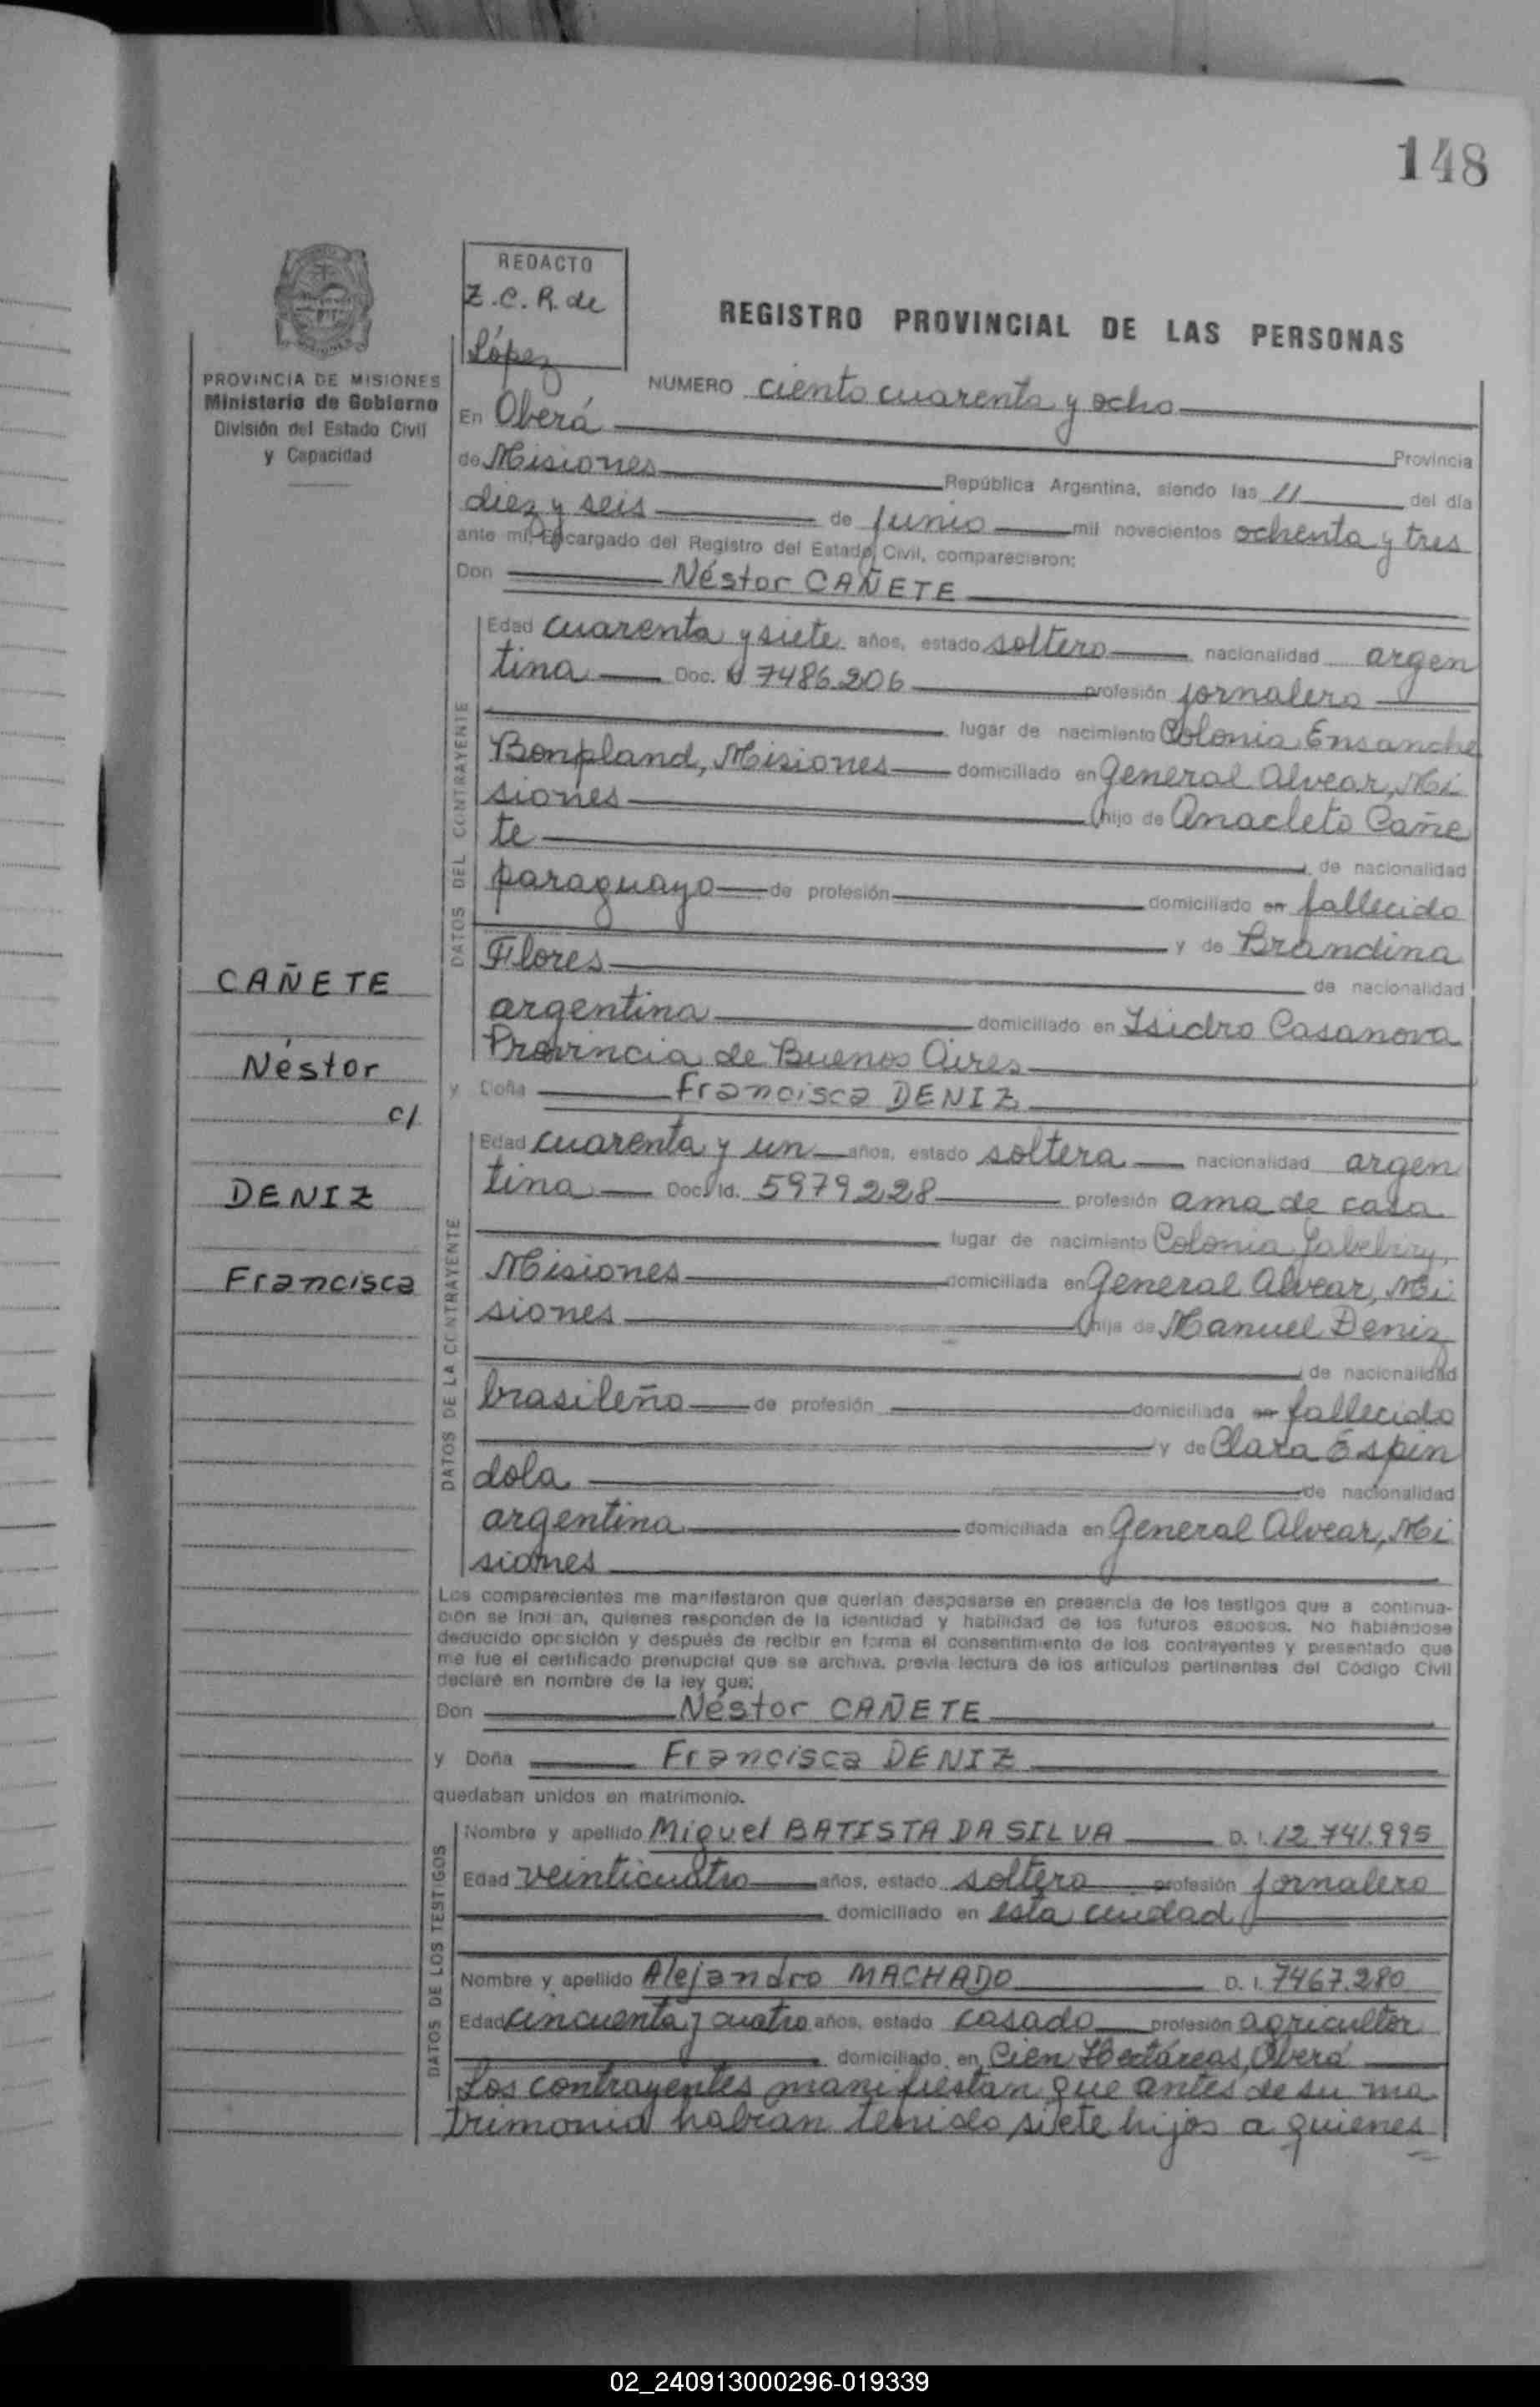 148
REDACTO
Z.C.R. de
López
REGISTRO PROVINCIAL DE LAS PERSONAS
PROVINCIA DE MISIONES
Ministerio de Gobierno
División del Estado Civil
y Capacidad
NUMERO ciento cuarenta y ocho
En Oberá Provincia
de Misiones República Argentina, siendo las 11 del día
diez y seis de junio mil novecientos ochenta y tres
ante mí, Encargado del Registro del Estado Civil, comparecieron:
Don Néstor CAÑETE
DATOS DEL CONTRAYENTE
Edad cuarenta y siete años, estado soltero nacionalidad argen
tina Doc. 7486.206 profesión jornalero
lugar de nacimiento Colonia Ensanche
Bonpland, Misiones domiciliado en General Alvear, Mi
siones hijo de Anacleto Cañe
te de nacionalidad
paraguayo de profesión domiciliado en fallecido
y de Brandina
Flores de nacionalidad
argentina domiciliado en Isidro Casanova
Provincia de Buenos Aires
y Doña Francisca DENIZ
CAÑETE
Néstor
c/
DENIZ
Francisca
DATOS DE LA CONTRAYENTE
Edad cuarenta y un años, estado soltera nacionalidad argen
tina Doc. Id. 5979228 profesión ama de casa
lugar de nacimiento Colonia Yabebiry,
Misiones domiciliada en General Alvear, Mi
siones hija de Manuel Deniz
de nacionalidad
brasileño de profesión domiciliada en fallecido
y de Clara Espin
dola de nacionalidad
argentina domiciliada en General Alvear, Mi
siones
Los comparecientes me manifestaron que querían desposarse en presencia de los testigos que a continua-
ción se indican, quienes responden de la identidad y habilidad de los futuros esposos. No habiéndose
deducido oposición y después de recibir en forma el consentimiento de los contrayentes y presentado que
me fue el certificado prenupcial que se archiva, previa lectura de los artículos pertinentes del Código Civil
declaré en nombre de la ley que:
Don Néstor CAÑETE
y Doña Francisca DENIZ
quedaban unidos en matrimonio.
DATOS DE LOS TESTIGOS
Nombre y apellido Miguel BATISTA DA SILVA D. I. 12.741.995
Edad veinticuatro años, estado soltero profesión jornalero
domiciliado en esta ciudad
Nombre y apellido Alejandro MACHADO D. I. 7467.280
Edad cincuenta y cuatro años, estado casado profesión agricultor
domiciliado en Cien Hectáreas, Oberá
Los contrayentes manifiestan que antes de su ma
trimonio habían tenido siete hijos a quienes
02_240913000296-019339